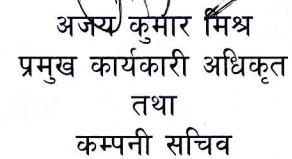 अजय कुमार मिश्र
प्रमुख कार्यकारी अधिकृत
तथा
कम्पनी सचिव